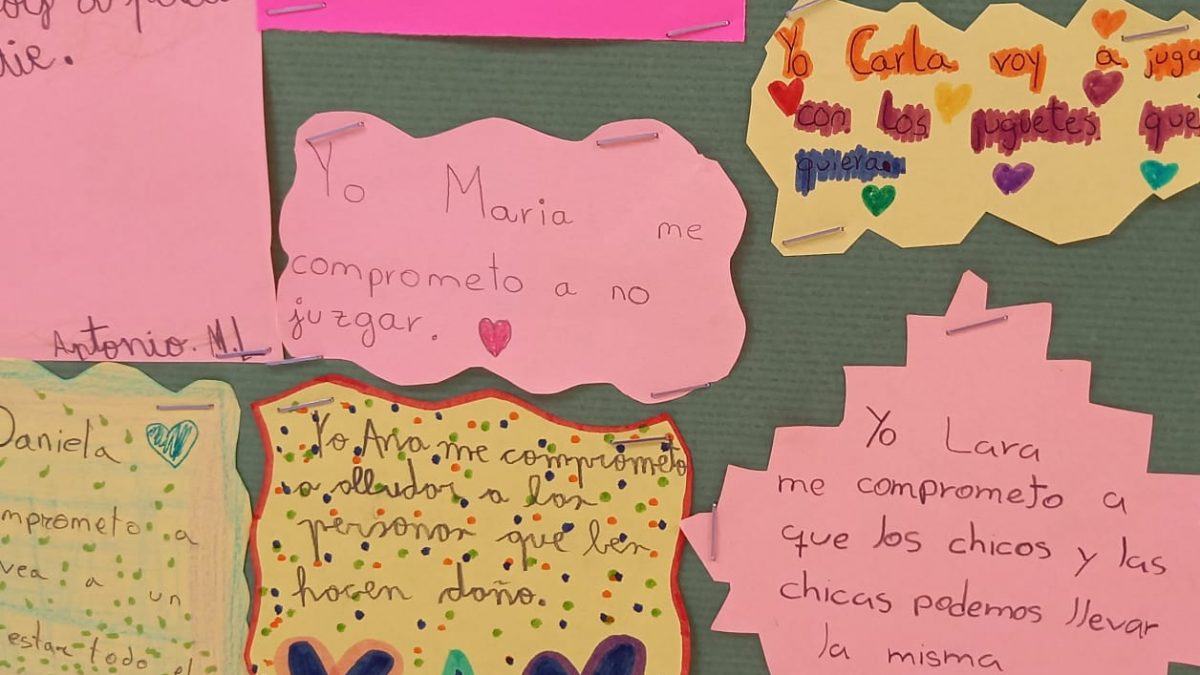 die.
Antonio. M.L
Yo Maria me
comprometo a no
juzgar.
Yo Carla voy a juga
con los juguetes que
quiera.
Daniela
mprometo a
vea a un
estar todo el
Yo Ana me comprometo
a alludar a las
personas que les
hacen daño.
Yo Lara
me comprometo a
que los chicos y las
chicas podemos llevar
la misma